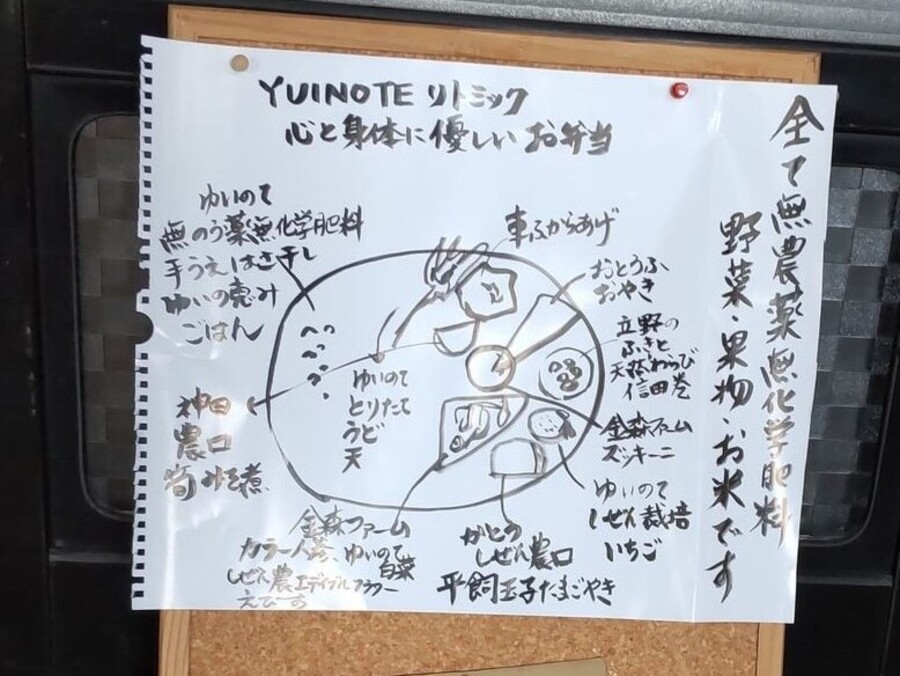 YUINOTE リトミック
心と身体に優しい お弁当
全て無農薬無化学肥料
野菜・果物・お米です
ゆいのて
無のう薬無化学肥料
手うえはさ干し
ゆいの恵み
ごはん
車ふからあげ
おとうふ
おやき
立野の
ふきと
わらび
信田巻
金森ファーム
ズッキーニ
ゆいのて
しぜん栽培
いちご
ゆいのて
とりたて
うど
天
神田
農口
筍みそ煮
金森ファーム
カラー人参、ゆいのて
白菜
しぜん農エディブルフラワー
がとう
しぜん農口
平飼玉子たまごやき